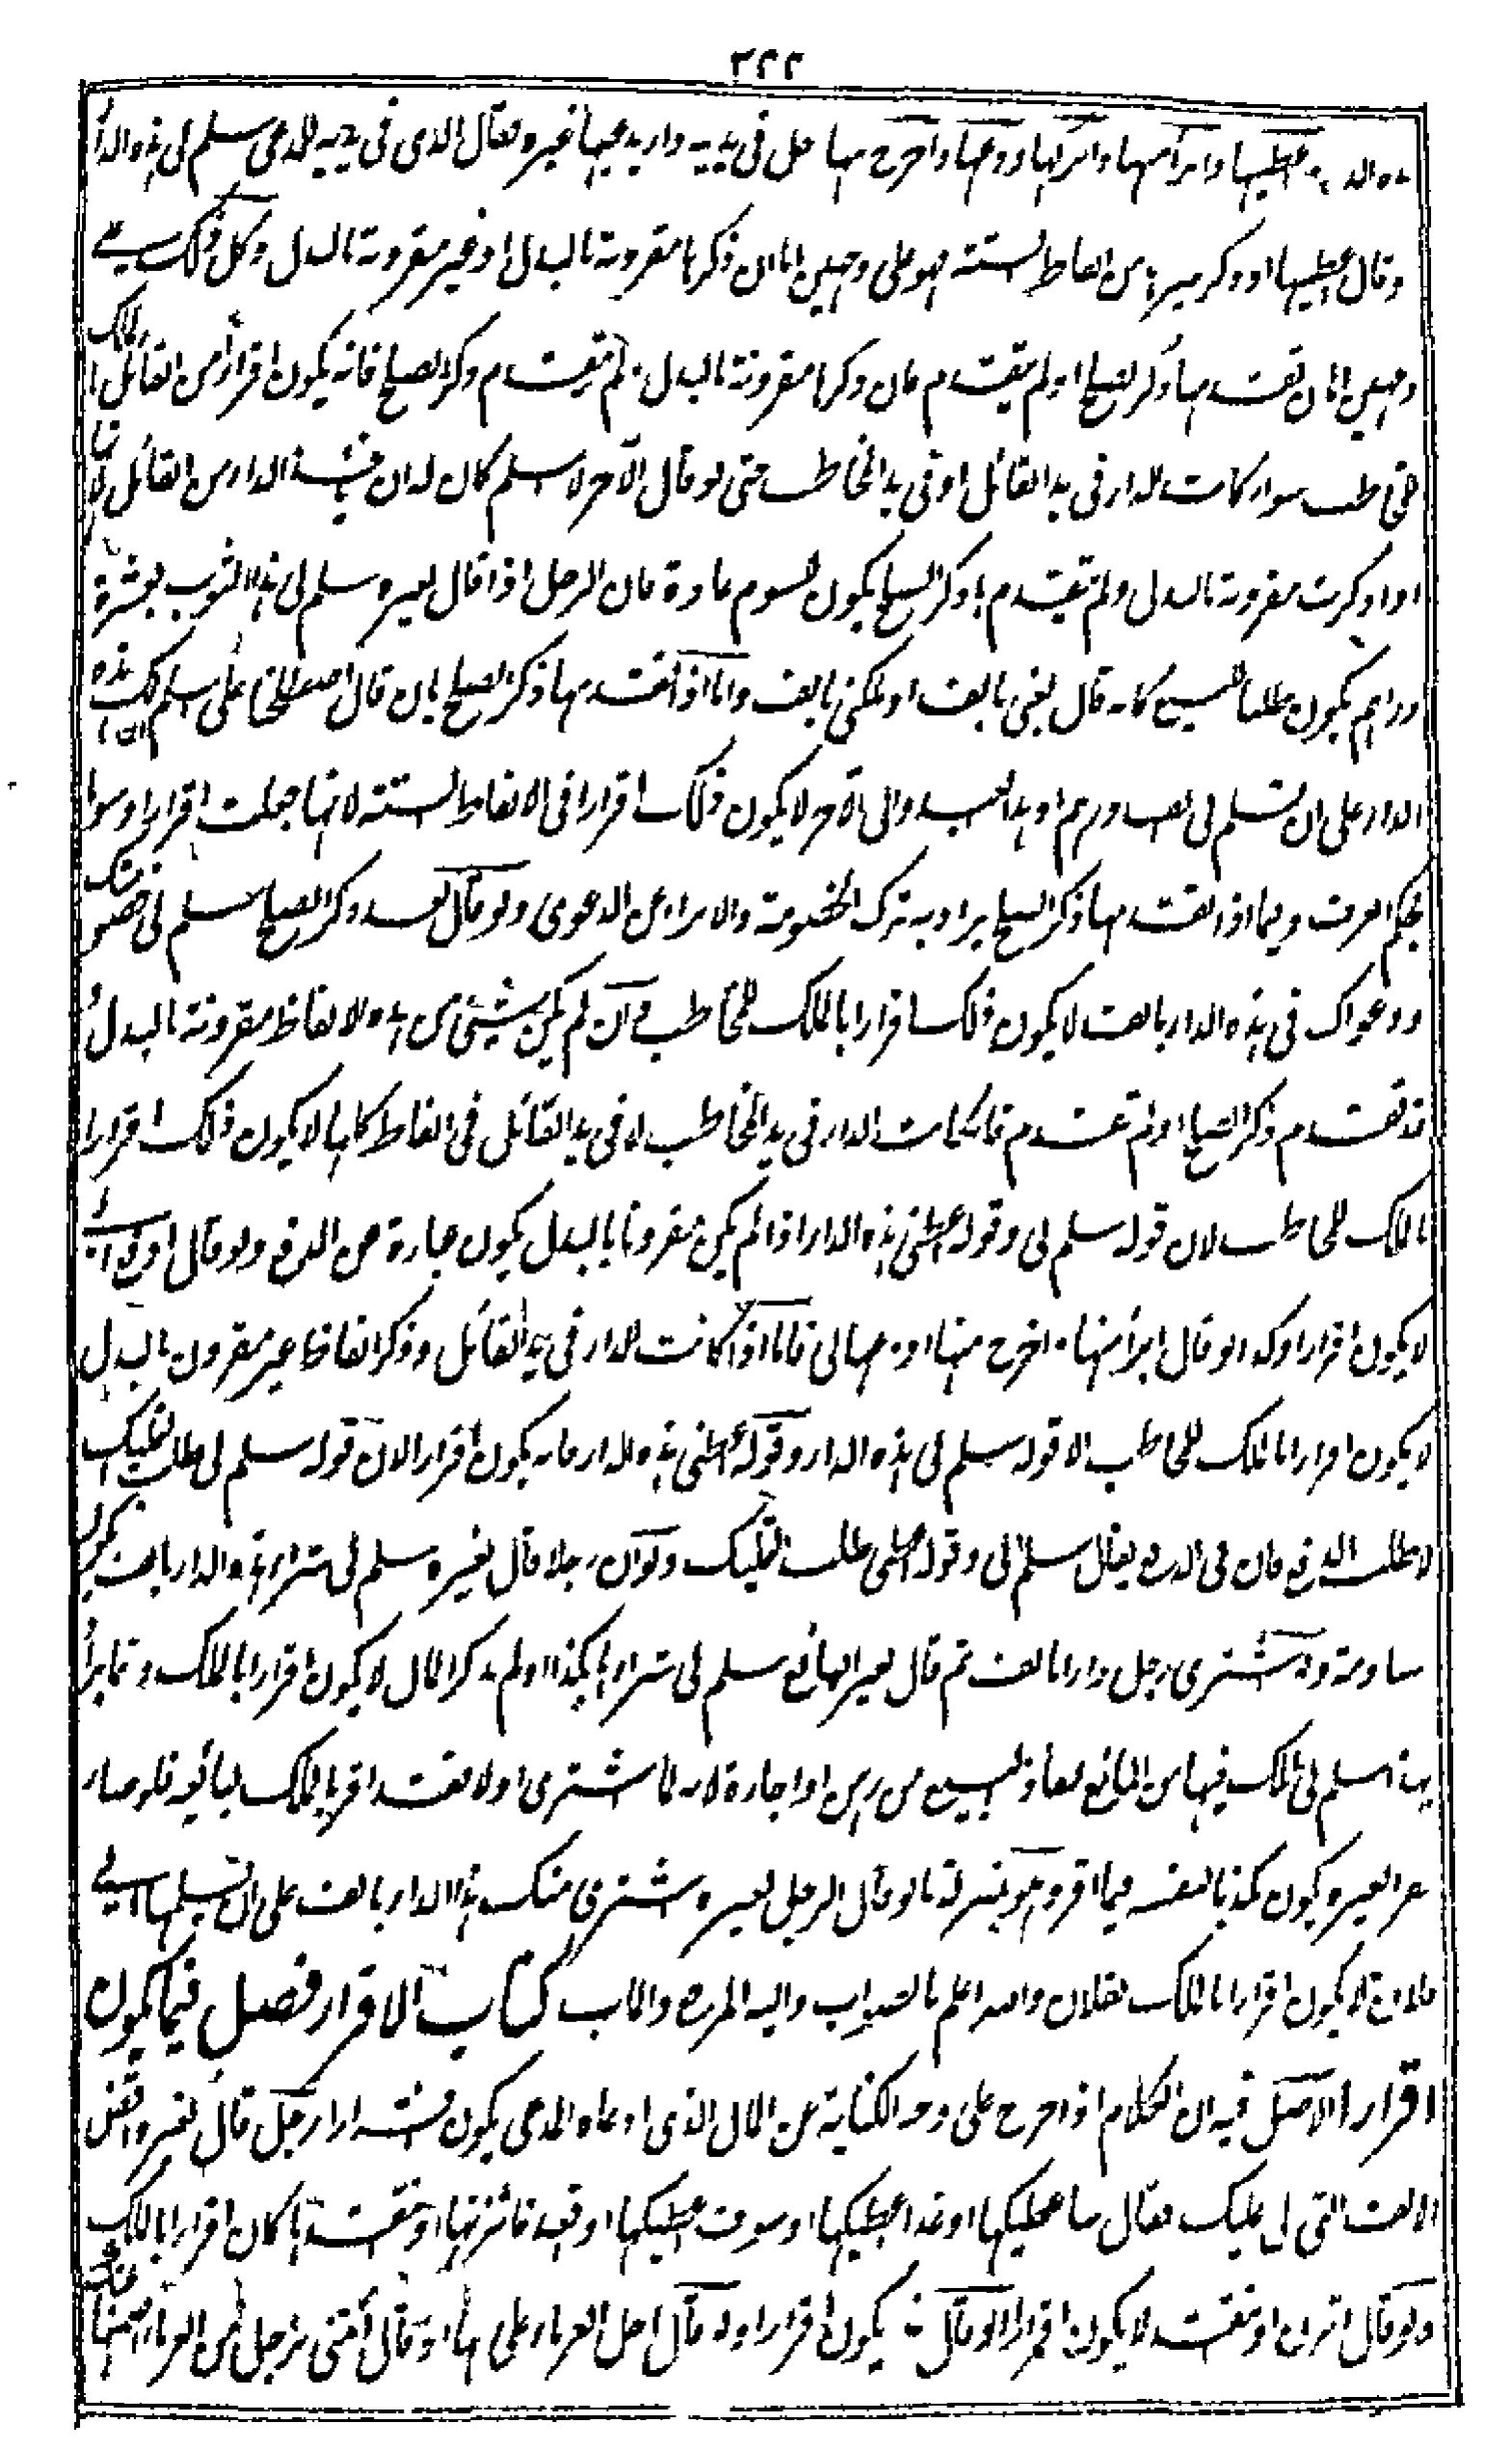 ٣٢٢
هذه الدار اعطيها وابرأ منها واتركها ودعها واخرج منها رجل في يديه دار يدعيها غيره فقال الذي في يديه للمدعي سلم لي هذه الدار
وقال اعطنيها او ذكر من الفاظ الستة فهو على وجهين اما ان ذكرها مقرونة بالبدل او غير مقرونة بالبدل وكل ذلك على
وجهين اما ان تقدمها ذكر الصلح او لم يتقدم فان ذكرها مقرونة بالبدل ولم يتقدم ذكر الصلح فانه يكون اقرارا من القائل بالملك
للمخاطب سواء كانت الدار في يد القائل او في يد المخاطب حتى لو قال الآخر لا اسلم كان له ان يأخذ الدار من القائل لانها
اذا ذكرت مقرونة بالبدل ولم يتقدم ذكر الصلح يكون للسوم عادة فان الرجل اذا قال لغيره سلم لي هذا الثوب بعشرة
دراهم يكون طلبا للبيع كانه قال بعني بالف او ملكني بالف واما اذا تقدمها ذكر الصلح بان قال اصطلحنا على ان اسلم لك هذه
الدار على ان تسلم لي الف درهم او هذا العبد وابى الآخر لا يكون ذلك اقرارا في الالفاظ الستة لانها جعلت اقرارا وسوما
بحكم العرف وفيما اذا تقدمها ذكر الصلح يراد به ترك الخصومة والابراء عن الدعوى ولو قال بعد ذكر الصلح سلم لي خصومتك
ودعواك في هذه الدار بالف لا يكون ذلك اقرارا بالملك للمخاطب وان لم يكن شيئ من هذه الالفاظ مقرونة بالبدل و
قد تقدم ذكر الصلح او لم يتقدم فان كانت الدار في يد المخاطب لا في يد القائل في الفاظ كلها لا يكون ذلك اقرارا
بالملك للمخاطب لان قوله سلم لي وقوله اعطني هذه الدار اذا لم يكن مقرونا بالبدل يكون عبارة عن الدفع ولو قال ادفع
لا يكون اقرارا وكذا لو قال ابرأ منها او اخرج منها او دعها لي فاما اذا كانت الدار في يد القائل وذكر الفاظا غير مقرون بالبدل
لا يكون اقرارا بالملك للمخاطب الا قوله سلم لي هذه الدار وقوله اعطني هذه الدار فانه يكون اقرارا لان قوله سلم لي طلب التمليك
لا طلب الدفع فان في الدفع يقال سلم الي وقوله اعطني طلب التمليك ولو ان رجلا قال لغيره سلم لي شراء هذه الدار بالف يكون
مساومة ولو اشترى رجل دارا بالف ثم قال لغير البائع سلم لي شراءها بكذا او لم يذكر المال لا يكون اقرارا بالملك
سلم لي ملك فيها من البائع او اجارة لانه لما اشترى اولا فقد اقر بالملك لبائعه فلو صار
مقرا لغيره يكون مكذبا لنفسه فيما اقر وهو بمنزلة ما لو قال الرجل لغيره اشتري منك هذه الدار بالف على ان يسلمها لي
فلان لا يكون اقرارا بالملك لفلان والله اعلم بالصواب واليه المرجع والمآب كتاب الاقرار فصل فيما يكون
اقرارا الاصل فيه ان الكلام اذا خرج على وجه الكناية عن المال الذي ادعاه المدعي يكون اقرارا رجل قال لغيره اقض
الالف التي لي عليك فقال ساعطيكها او غدا اعطيكها او سوف اعطيكها او اقعد فاتزنها او انتقدها كان اقرارا بالملك
ولو قال اتزن او انتقد لا يكون اقرارا ولو قال يكون اقرارا ولو قال احل الغرماء علي بها او قال ائتني برجل من الغرماء اضمنها عنك